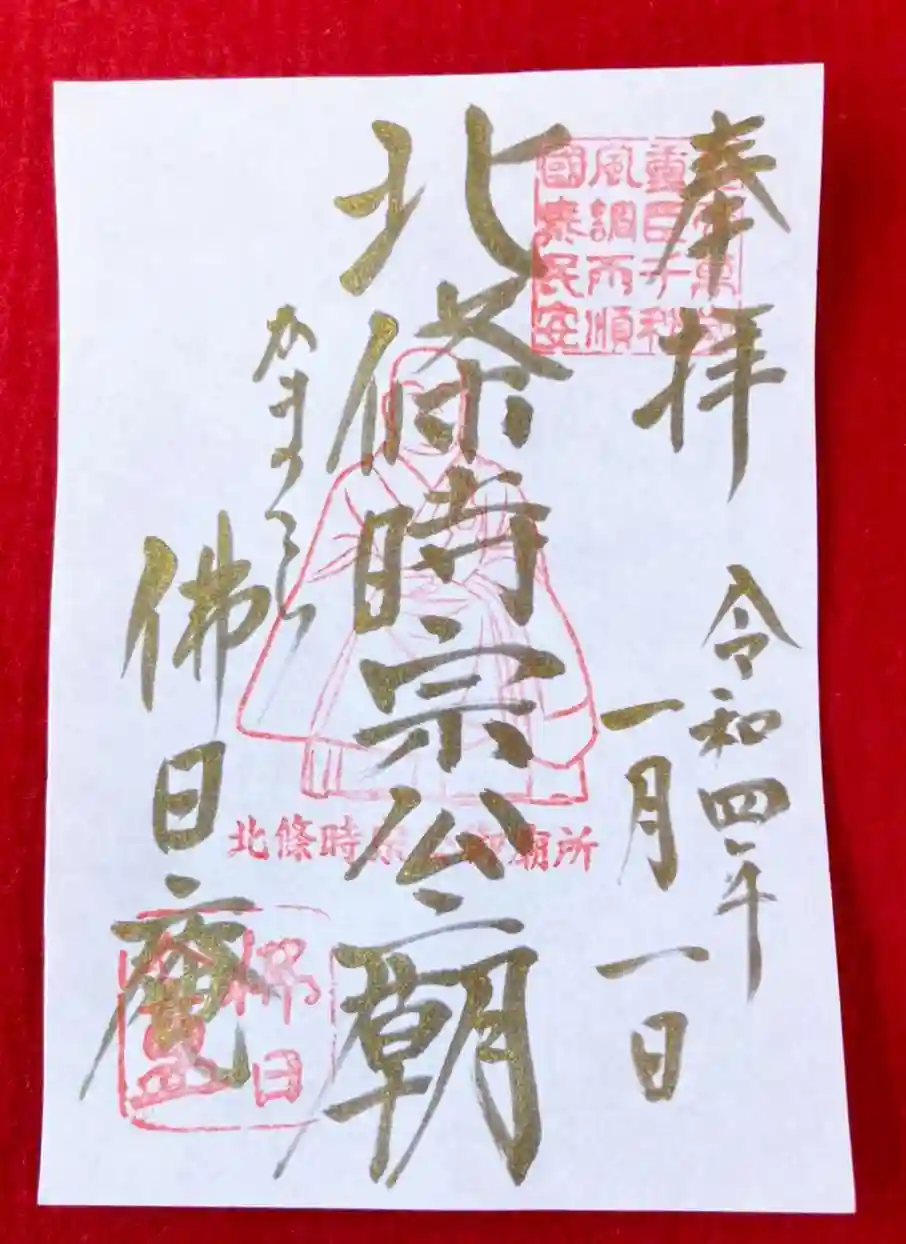 奉拝
令和四年
一月一日
北條時宗公廟
かまくら
佛日庵
重臣千秋
風調雨順
國泰民安
北條時宗公御廟所
佛日